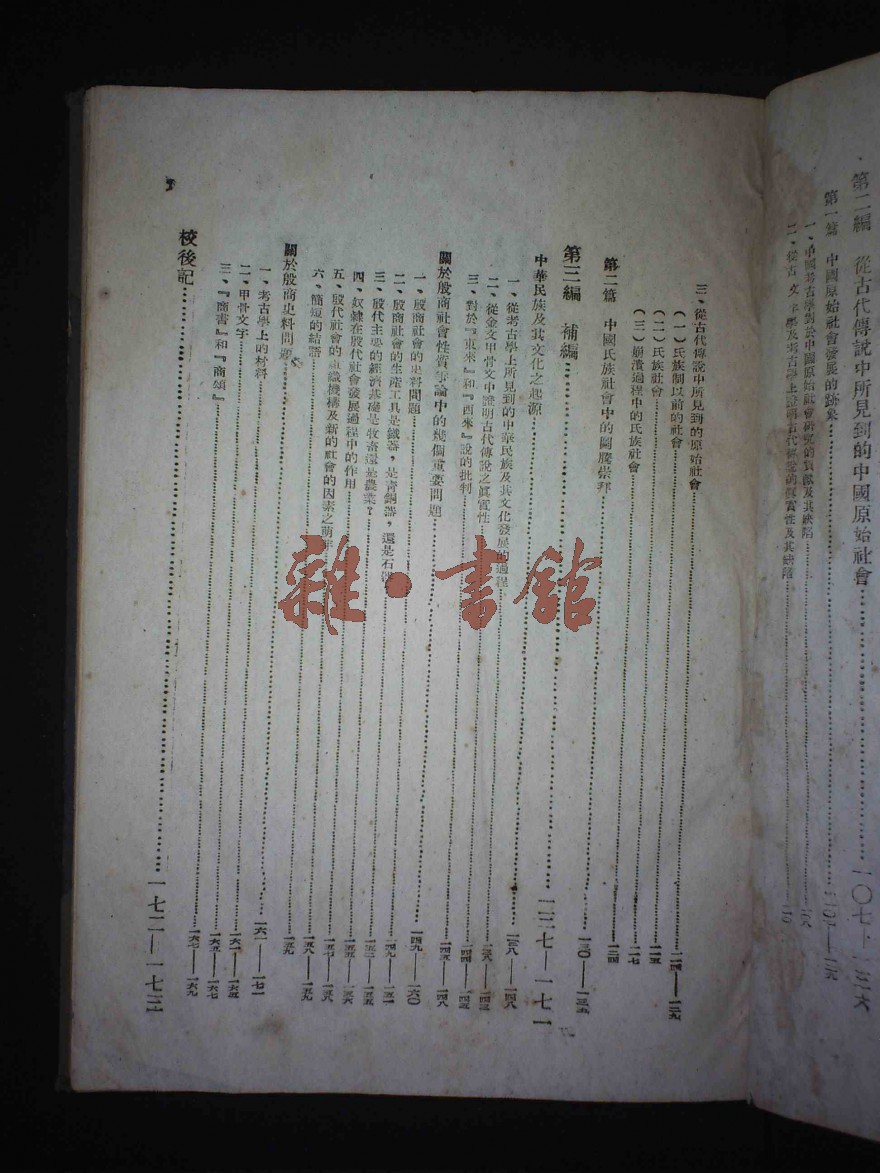 第二編 從古代傳說中所見到的中國原始社會
第一篇 中國原始社會發展的跡象
一、中國考古學對於中國原始社會研究的貢獻及其缺陷
二、從古文字學及考古學上證明古代傳說的真實性及其缺陷
三、從古代傳說中所見到的原始社會
(一)氏族制以前的社會
(二)氏族社會
(三)崩潰過程中的氏族社會
第二篇 中國氏族社會中的圖騰崇拜 一三〇——一三五
第三編 補編 一三七—一七一
中華民族及其文化之起源 一三八——一四八
一、從考古學上所見到的中華民族及其文化發展的過程
二、從金文甲骨文中證明古代傳說之眞實性
三、對於『東來』和『西來』說的批判
關於殷商社會性質爭論中的幾個重要問題 一四九——一六〇
一、殷商社會的史料問題 一四九——一五一
二、殷商社會的生產工具是鐵器，是青銅器，還是石器
三、殷代主要的經濟基礎是牧畜還是農業？
四、奴隸在殷代社會發展過程中的作用
五、殷代社會的組織機構及新的社會的因素之萌芽
六、簡短的結語
關於殷商史料問題 一六一——一七一
一、考古學上的材料
二、甲骨文字
三、『商書』和『商頌』
校後記 一七二—一七三
雜·書館